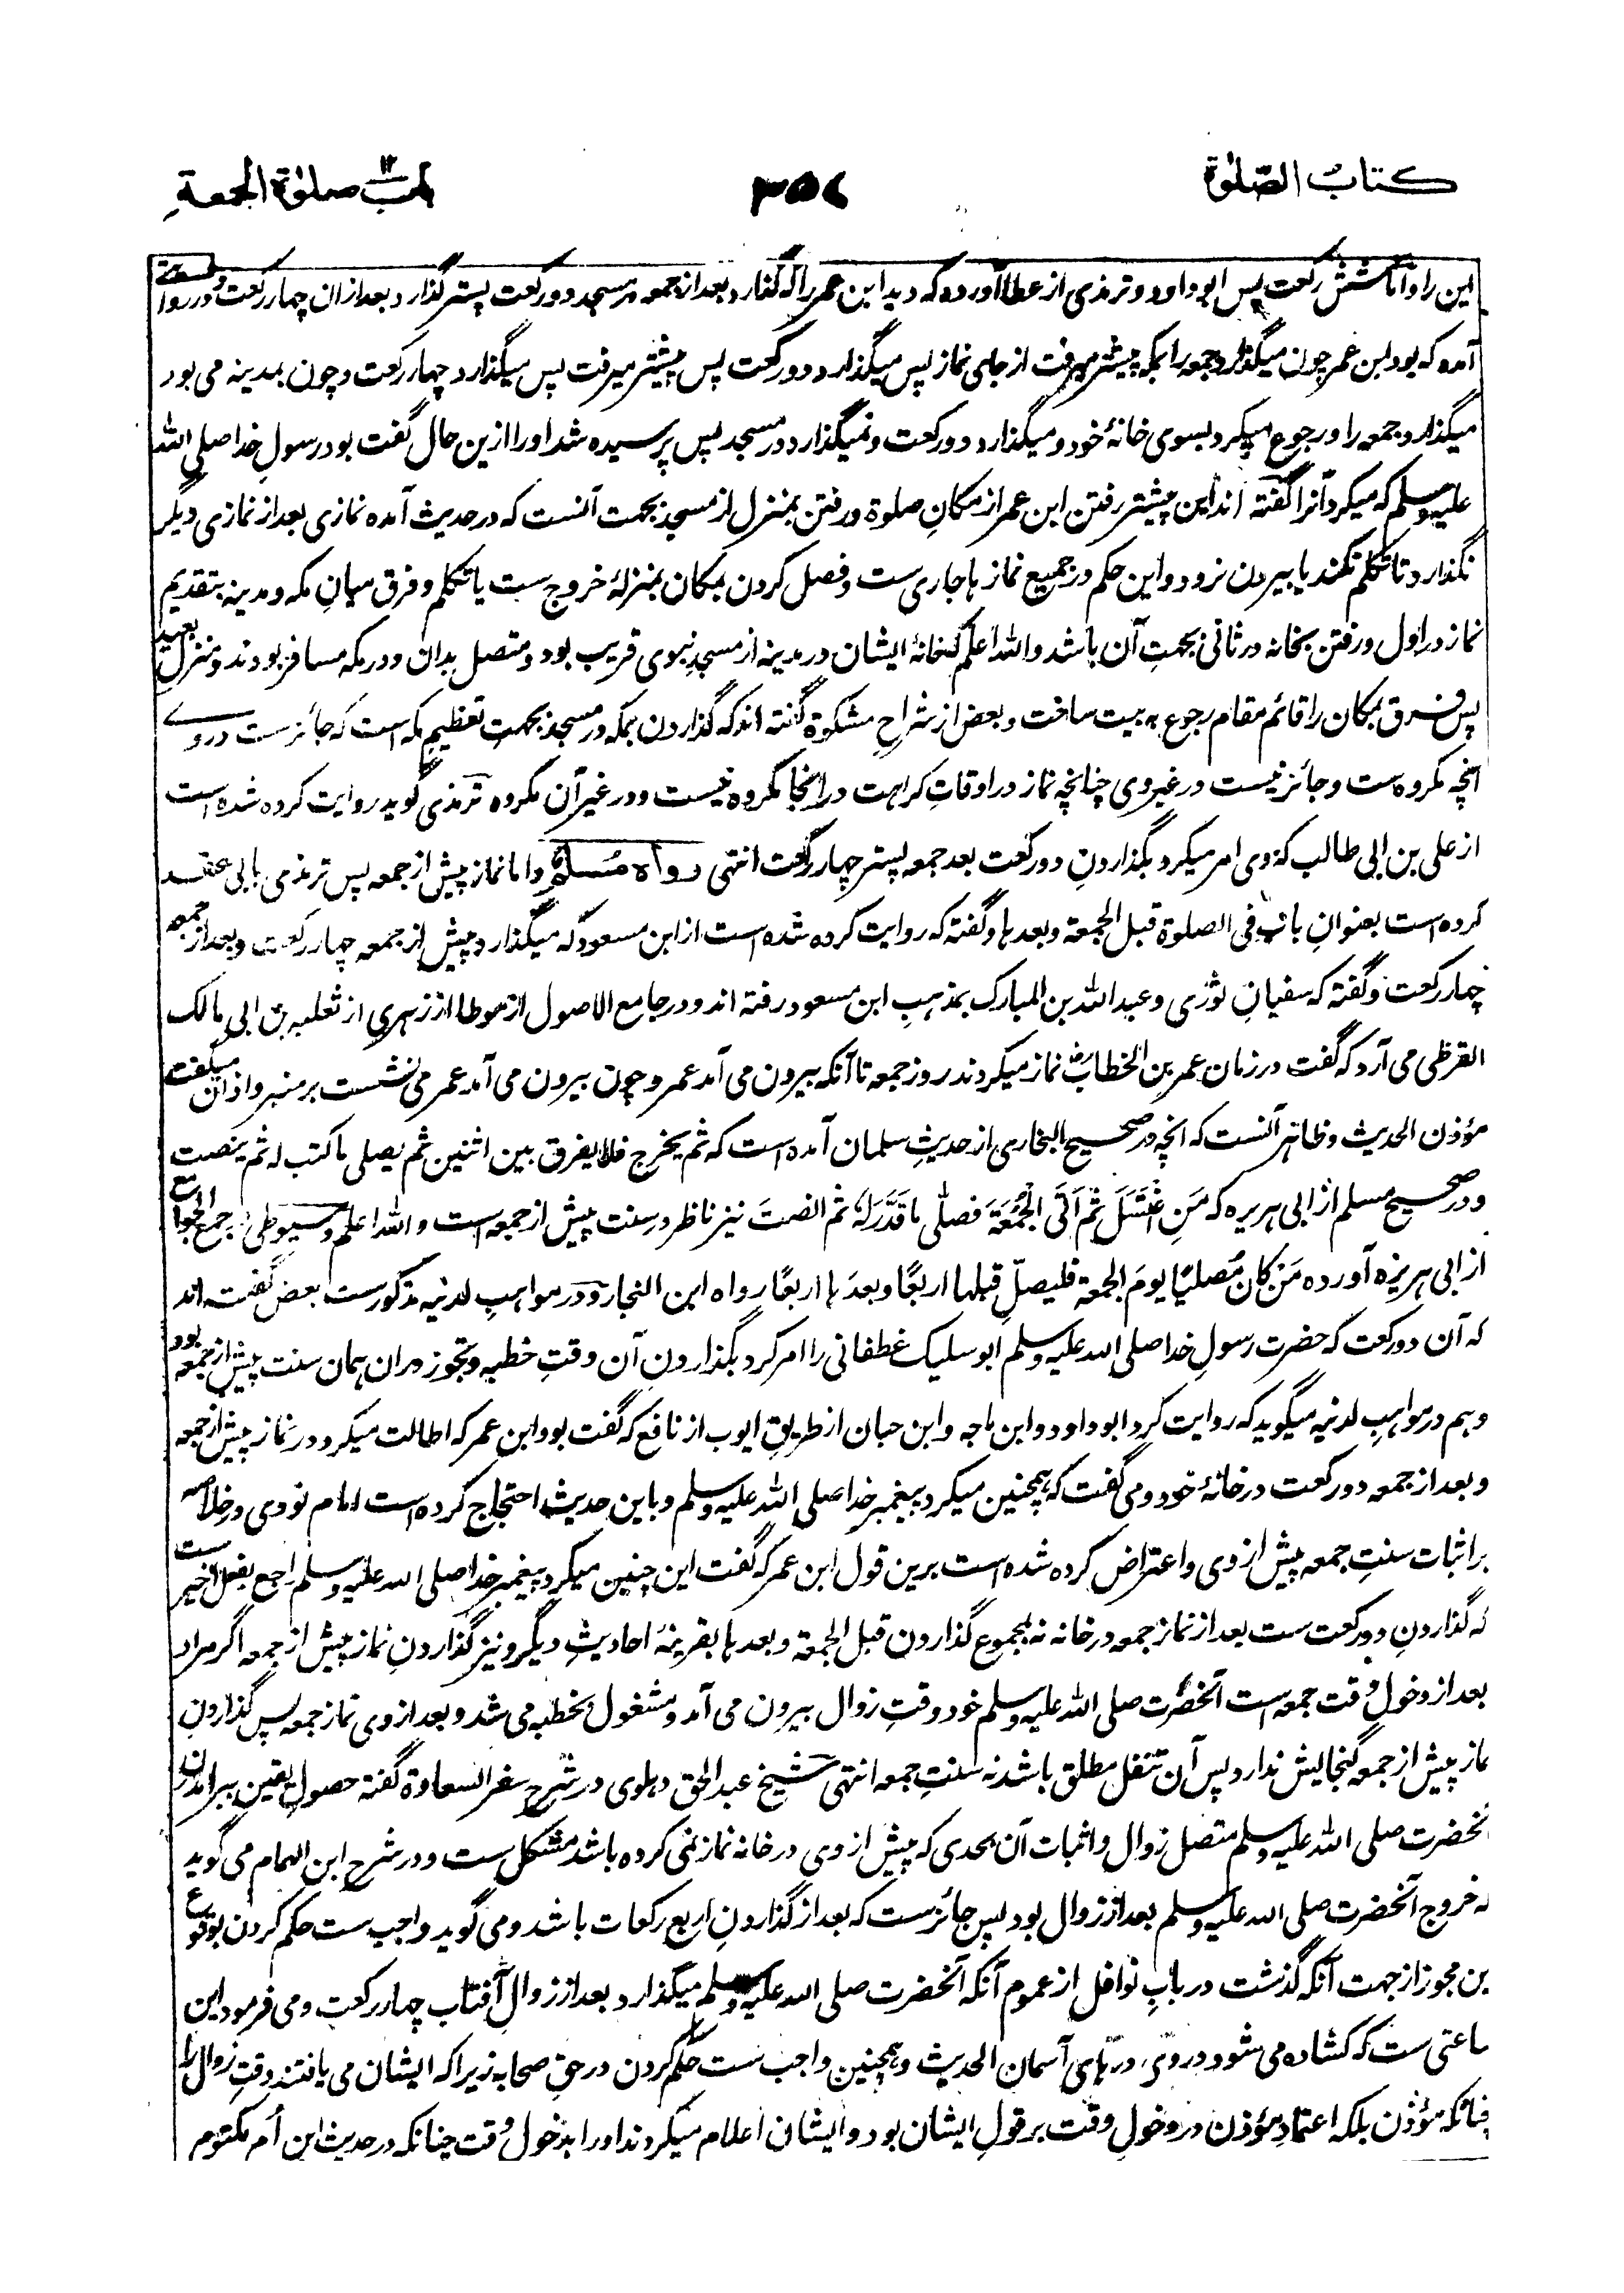 كتاب الصلوٰة
٣٥٤
باب صلوٰة الجمعة
این را واما شش رکعت پس ابو داود و ترمذی از عطا آورده که دید ابن عمر را که گذارد بعد از جمعه در مسجد دو رکعت پستر گذارد بعد ازان چهار رکعت و در روایتے
آمده که بود ابن عمر چون میگذارد جمعه را بمکه پیشتر میرفت از جای نماز پس میگذارد دو رکعت پس پیشتر میرفت پس میگذارد چهار رکعت و چون بمدینه می بود
میگذارد جمعه را و رجوع میکرد بسوی خانهٔ خود و میگذارد دو رکعت و نمیگذارد در مسجد پس پرسیده شد او را ازین حال گفت بود رسول خدا صلی الله
علیه وسلم که میکرد آنرا گفته اند این پیشتر رفتن ابن عمر از مکانِ صلوة و رفتن بمنزل از مسجد بجهت آنست که در حدیث آمده نمازی بعد از نمازی دیگر
نگذارد تا تکلم نکند یا بیرون نرود و این حکم در جمیع نمازها جاری ست و فصل کردن بمکان بمنزلهٔ خروج ست یا تکلم و فرق میانِ مکه و مدینه بتقدیم
نماز در اول و رفتن بخانه در ثانی بجهتِ آن باشد والله اعلم که خانهٔ ایشان در مدینه از مسجدِ نبوی قریب بود و متصل بدان و در مکه مسافر بودند و منزل بعید
پس فرق بمکان را قائم مقام رجوع به بیت ساخت و بعض از شراحِ مشکوة گفته اند که گذاردن بمکه در مسجد بجهتِ تعظیمِ مکه است که جائزست در وے
آنچه مکروه ست و جائز نیست در غیر وی چنانچه نماز در اوقاتِ کراهت در آنجا مکروه نیست و در غیر آن مکروه ترمذی گوید روایت کرده شده است
از علی بن ابی طالب که وی امر میکرد بگذاردنِ دو رکعت بعد جمعه پستر چهار رکعت انتهی رواه مسلم واما نماز پیش از جمعه پس ترمذی بابی عقد
کرده است بعنوانِ باب فی الصلوة قبل الجمعة وبعدها و گفته که روایت کرده شده است از ابن مسعود که میگذارد پیش از جمعه چهار رکعت و بعد از جمعه
چهار رکعت و گفته که سفیانِ ثوری و عبد الله بن المبارک بمذهبِ ابن مسعود رفته اند و در جامع الاصول از موطا از زهری از ثعلبه بن ابی مالک
القرظی می آرد که گفت در زمان عمر بن الخطاب نماز میکردند روز جمعه تا آنکه بیرون می آمد عمر و چون بیرون می آمد عمر می نشست بر منبر و اذان میگفت
مؤذن الحدیث و ظاهر آنست که آنچه در صحیح البخاری از حدیثِ سلمان آمده است که ثم یخرج فلا یفرق بین اثنین ثم یصلی ما کتب له ثم ینصت
و در صحیح مسلم از ابی هریره که مَنِ اغْتَسَلَ ثم اَتَی الْجُمُعَةَ فصلّٰی ما قَدَّرَ لَهٗ ثم انصتَ نیز ناظر در سنت پیش از جمعه است والله اعلم و سیوطی در جمع الجوامع
از ابی هریره آورده مَنْ کان مُصلیًا یومَ الجمعة فلیصلّ قبلها اربعًا وبعدَها اربعًا رواه ابن النجار و در مواهبِ لدنیه مذکورست بعض گفته اند
که آن دو رکعت که حضرت رسولِ خدا صلی الله علیه وسلم ابو سلیک غطفانی را امر کرد بگذاردنِ آن وقتِ خطبه و تجوز دران همان سنت پیش از جمعه بود
و هم در مواهبِ لدنیه میگوید که روایت کرد ابو داود و ابن ماجه و ابن حبان از طریقِ ایوب از نافع که گفت بود ابن عمر که اطالت میکرد در نماز پیش از جمعه
و بعد از جمعه دو رکعت در خانهٔ خود و می گفت که همچنین میکرد پیغمبر خدا صلی الله علیه وسلم و باین حدیث احتجاج کرده است امام نووی در خلاصه
بر اثبات سنتِ جمعه پیش از وی و اعتراض کرده شده است برین قول ابن عمر که گفت این چنین میکرد پیغمبر خدا صلی الله علیه وسلم راجع بفعل اخیر ست
که گذاردنِ دو رکعت ست بعد از نماز جمعه در خانه نه بمجموع گذاردن قبل الجمعة وبعدها بقرینهٔ احادیثِ دیگر و نیز گذاردنِ نماز پیش از جمعه اگر مراد
بعد از دخول وقت جمعه است آنحضرت صلی الله علیه وسلم خود وقتِ زوال بیرون می آمد و مشغول بخطبه می شد و بعد از وی نماز جمعه پس گذاردنِ
نماز پیش از جمعه گنجایش ندارد پس آن تنفل مطلق باشد نه سنتِ جمعه انتهی شیخ عبد الحق دهلوی در شرح سفر السعادة گفته حصولِ یقین ببر آمدن
آنحضرت صلی الله علیه وسلم متصل زوال و اثبات آن بحدی که پیش از وی در خانه نماز نمی کرده باشد مشکل ست و در شرح ابن الهمام می گوید
که خروج آنحضرت صلی الله علیه وسلم بعد از زوال بود پس جائزست که بعد از گذاردنِ اربع رکعات باشد و می گوید واجب ست حکم کردن بوقوع
این مجوز از جهت آنکه گذشت در بابِ نوافل از عموم آنکه آنحضرت صلی الله علیه وسلم میگذارد بعد از زوالِ آفتاب چهار رکعت و می فرمود این
ساعتی ست که کشاده می شود در وی درهای آسمان الحدیث و همچنین واجب ست حکم کردن در حقِ صحابه زیرا که ایشان می یافتند وقتِ زوال را
چنانکه مؤذن بلکه اعتمادِ مؤذن در دخولِ وقت بر قولِ ایشان بود و ایشان اعلام میکردند او را بدخول وقت چنانکه در حدیث ابن اُم مکتوم